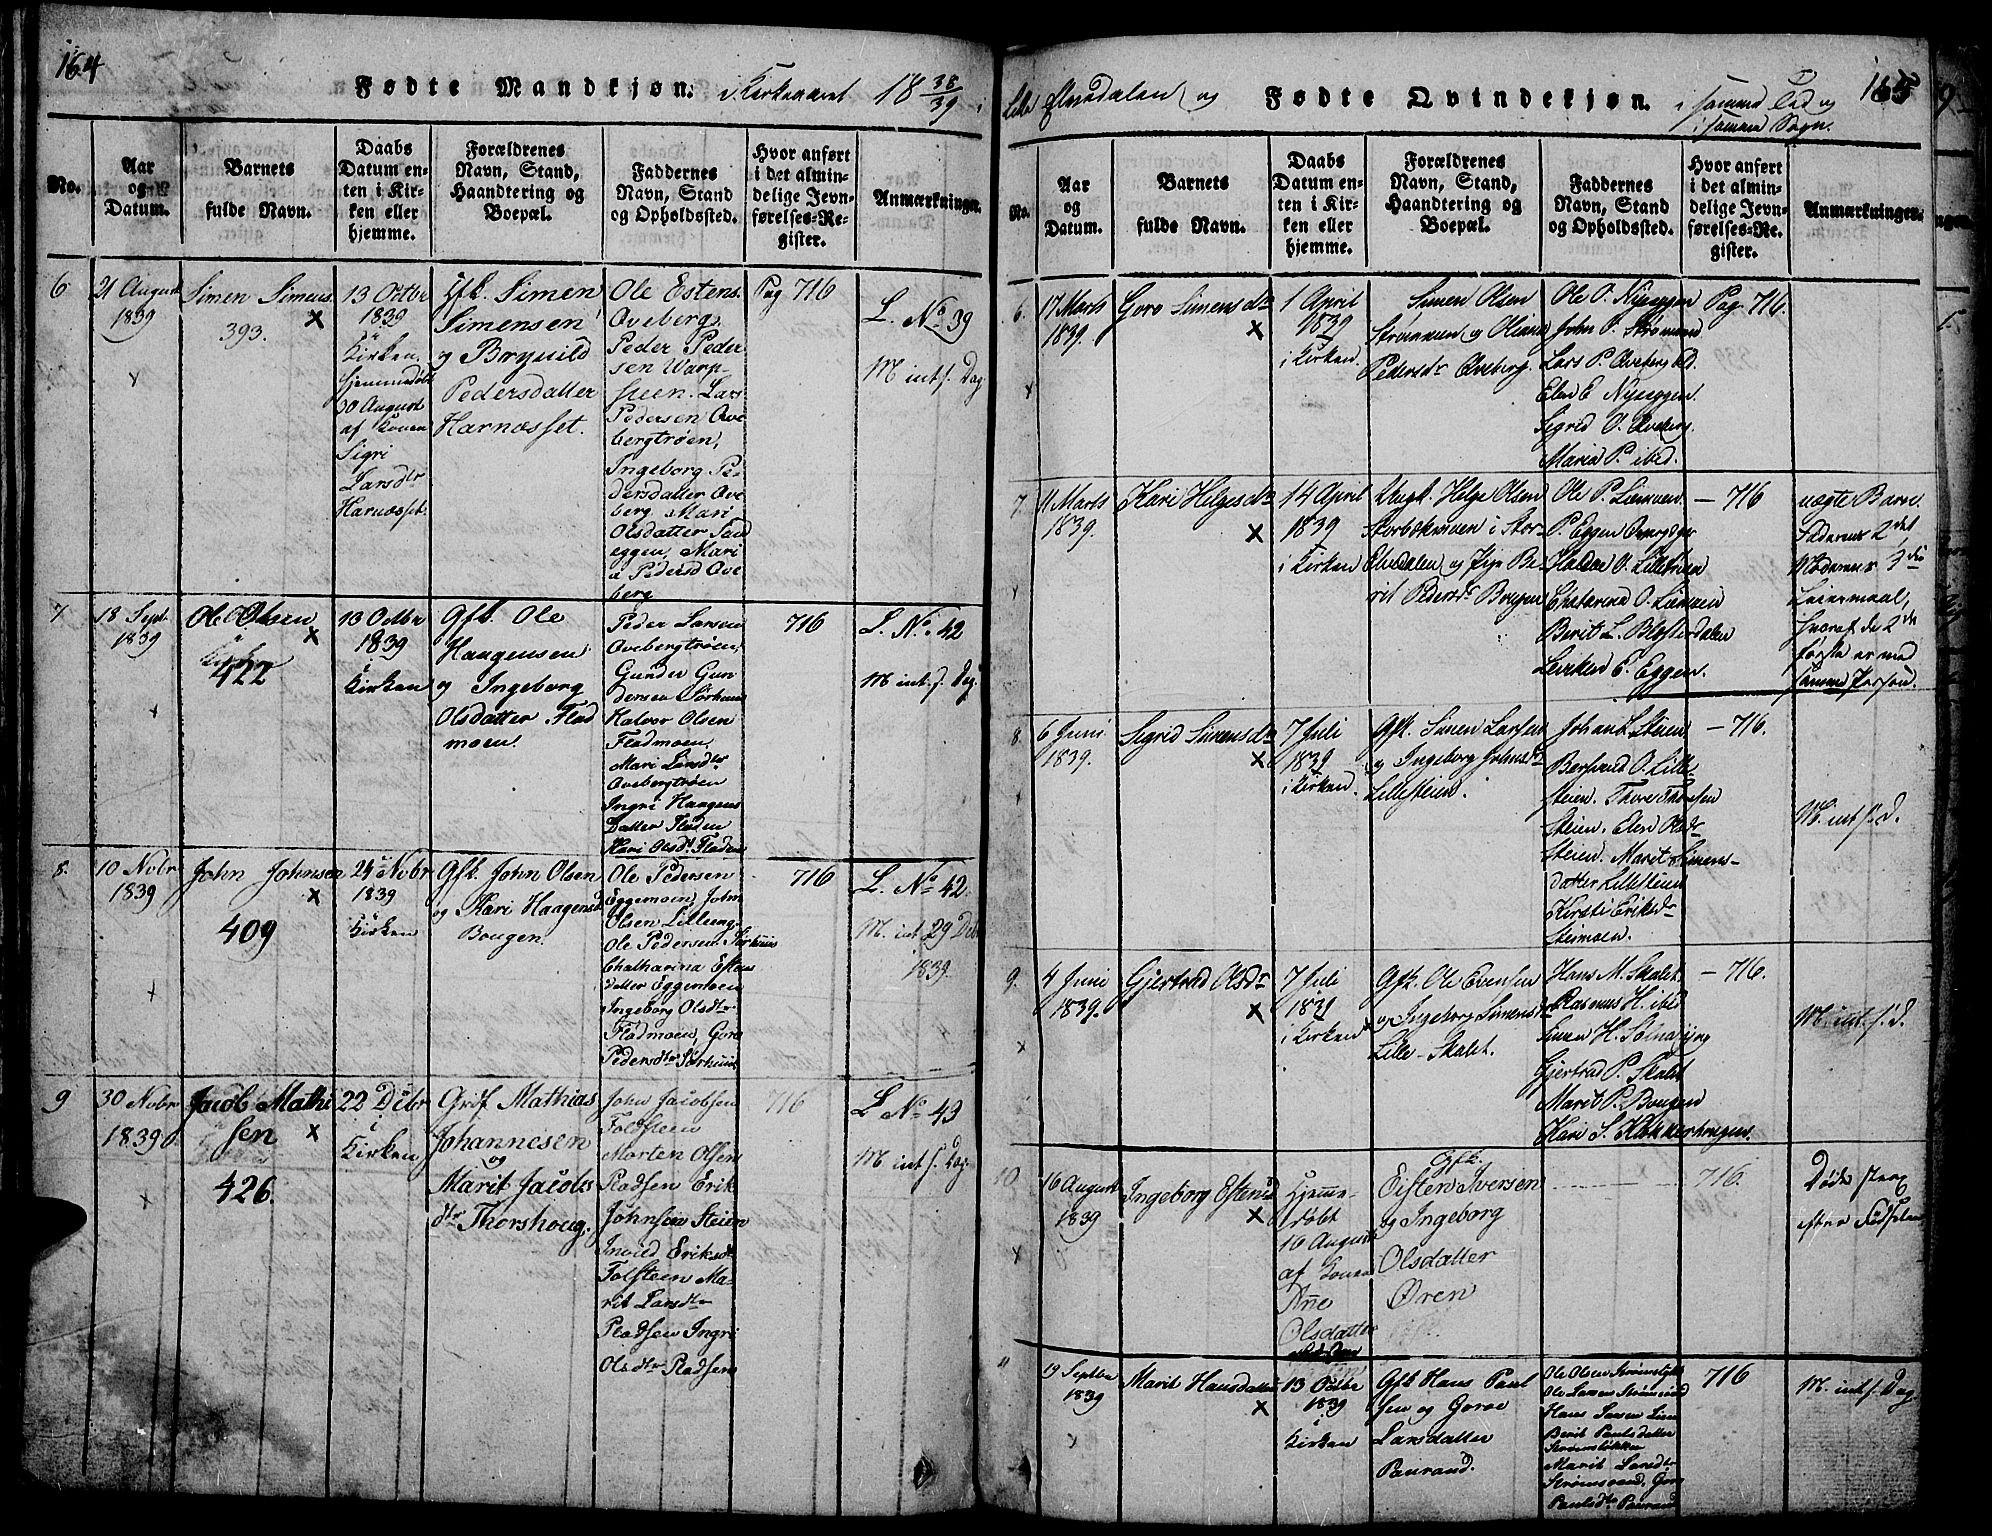 164
Fødte Mandkjøn. i Kirkeaaret 18 38/39 i
No.
Aar
og
Datum.
Barnets
fulde Navn.
Daabs
Datum en-
ten i Kir-
ken eller
hjemme.
Forældrenes
Navn, Stand,
Haandtering og
Boepæl.
Faddernes
Navn, Stand
og Opholdssted.
Hvor anført
i det almin-
delige Jevn-
førelses-Re-
gister.
Anmærkninger.
6
21 August
1839
Simen Simens
393.
13 Octbr
1839
i
Kirken
hjemmedøbt
30 August
af Konen
Sigri
Larsdtr
Harnæsset.
Gfk. Simen
Simensen
og Brynild
Pedersdatter
Harnæsset.
Ole Estens.
Oveberg.
Peder Peder
sen Warp-
steen. Lars
Pedersen Ove
bergtrøen,
Ingeborg Pe-
dersdatter Ove
berg, Mari
Olsdatter
eggen, Mari
Pedersd Ove
berg
Pag 716
L. No. 39
M int. s. Dag.
7
18 Sept.
1839
Ole Olsen
422
13 Octbr
1839
i
Kirken
Gfk. Ole
Haagensen
og Ingeborg
Olsdatter Flad
moen.
Peder Larsen
Ovebergtrøen,
Gunder Gun
dersen Sørhuus
Halvor Olsen
Fladmoen.
Mari Larsdtr
Ovebergtrøen
Ingri Haagens
Datter Floden
Kari Olsd. Floden
716
L. No. 42
M int. s. Dag.
8.
10 Nobr
1839
John Johnsen
409
24 Nobr
1839
i
Kirken
Gfk. John Olsen
og Kari Haagensd
Bougen.
Ole Pedersen
Eggemoen, John
Olsen Lilleeng-
Ole Pedersen Sørhuus
Chatharina Estens
datter Eggemoen
Ingeborg Olsdtr
Flodmoen, Goro
Pedersdtr Sørhuus
716
L. No. 42.
M. int. 29 Dbr
1839.
9
30 Nobr
1839
Jacob Mathi
sen
426.
22 Dcbr
i
Kirken
Grdf Mathias
Johannesen
og
Marit Jacobs
dtr Thorshoug.
John Jacobsen
Folsteen
Morten Olsen
Pladsen Erik
Johnsen Steien
Eriksdr
Folsteen Ma-
rit Larsdtr
Pladsen Ingri
Olsdtr Pladsen
716
L No. 43
M int s. Dag.
Lille Elvedalen og Fødte Qvindekjøn. i samme Tid og
i samme Sogn.
165
No.
Aar
og
Datum.
Barnets
fulde Navn.
Daabs
Datum en-
ten i Kir-
ken eller
hjemme.
Forældrenes
Navn, Stand,
Haandtering og
Boepæl.
Faddernes
Navn, Stand
og Opholdssted.
Hvor anført
i det almin-
delige Jevn-
førelses-Re-
gister.
Anmærkninger.
6.
17 Marts
1839.
Goro Simensdr
1 April
1839
i Kirken.
Simen Olsen
Strømmen og Oliana
Pedersdr Oveberg.
Ole O. Nyeggen
John P. Strømmen
Lars P. Oveberg
Elen E. Nyeggen.
Sigrid O. Oveberg.
Maria P. ibed.
Pag. 716.
7.
11 Marts
1839.
Kari Helgesdr
14 April
1839
i Kirken
Ungk. Helge Olsen
Storbækmoen i Stor-
Elvdalen og Pige Be-
rit Pedersdr Bougen
Ole P. Liemoen.
P. Eggen
Haldor O. Lillebrien
Chatarina O. Liemoen
Berit L. Blesterdalen
Lerken E. Eggen.
- 716
uægte Barn.
Faderens 2det
Moderens 3die
Leiermaal,
hvoraf de 2de
første er med
samme Person.
8.
6 Juni
1839.
Sigrid Simensdr
7 Juli
1839
i Kirken.
Gft. Simen Larsen
og Ingeborg Johnsdr
Lillesteien.
Johan L. Steien
Bersvend O. Lille-
steien. Thore Thoresen
Steien. Elen Olsdr
Steien. Marit Simens-
datter Lillesteien
Kirsti Eriksdr
Steimoen.
- 716.
M. int. s. d.
9.
4 Juni
1839.
Gjertrud Olsdr
7 Juli
1839
i Kirken
Gfk. Ole Evensen
og Ingeborg Simensdr
Lille-Skalet.
Hans M. Skalet.
Rasmus H. ibid
Simen H.
Gjertrud P. Skalet
Marit P. Bougen
Kari S.
- 716.
M. int. s. d.
10
16 August
1839
Ingeborg Estensd
Hjemme-
døbt
16 August
af Konen
Ane
Olsdatter
Gfk.
Eisten Iversen
og Ingeborg
Olsdatter
Øren
716.
Døde strax
efter Fødselen
11
19 Septbr
1839
Marit Hansdatter
13 Octbr
1839
i
Kirken
Gfk Hans Paul
sen og Goroe
Larsdatter
Paurand.
Ole Olsen
Ole Larsen
Hans Larsen Lien
Berit Paulsdatter
Marit Larsdtr
Paulsdtr Paurand
716
M. int s. Dag